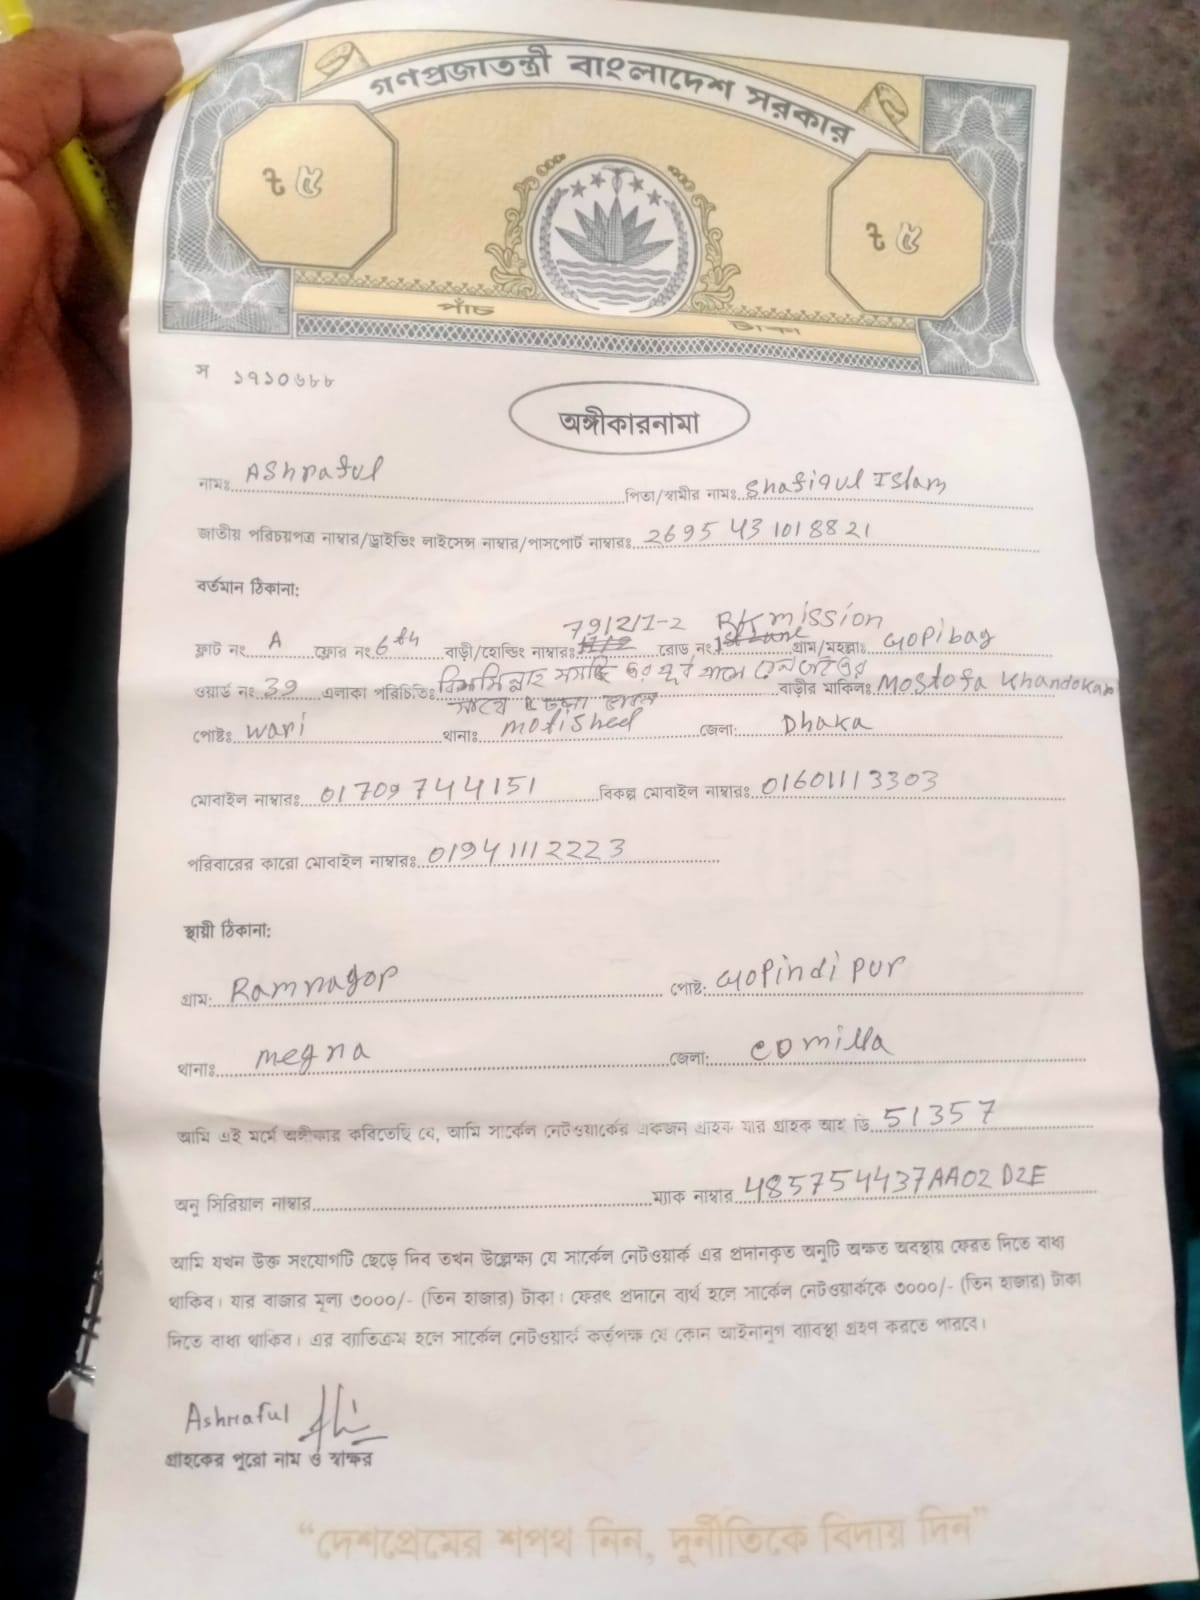 গণপ্রজাতন্ত্রী বাংলাদেশ সরকার
ট ৫
ট ৫
পাঁচ টাকা
স ১৭১০৬৮৮
অঙ্গীকারনামা
নামঃ Ashraful পিতা/স্বামীর নামঃ Shafiqul Islam
জাতীয় পরিচয়পত্র নাম্বার/ড্রাইভিং লাইসেন্স নাম্বার/পাসপোর্ট নাম্বারঃ 2695431018821
বর্তমান ঠিকানা:
79/2/I-2 RK mission
ফ্লাট নং A ফ্লোর নং 6th বাড়ী/হোল্ডিং নাম্বারঃ রোড নং 1st Lane গ্রাম/মহল্লাঃ Gopibag
ওয়ার্ড নং 39 এলাকা পরিচিতিঃ বাড়ীর মালিকঃ Mostofa Khandokar
পোষ্টঃ Wari থানাঃ motisheel জেলা: Dhaka
মোবাইল নাম্বারঃ 01709744151 বিকল্প মোবাইল নাম্বারঃ 01601113303
পরিবারের কারো মোবাইল নাম্বারঃ 01941112223
স্থায়ী ঠিকানা:
গ্রাম: Ramnagor পোষ্ট: Gopindipur
থানাঃ megna জেলা: comilla
আমি এই মর্মে অঙ্গীকার করিতেছি যে, আমি সার্কেল নেটওয়ার্কের একজন গ্রাহক যার গ্রাহক আই ডি 51357
অনু সিরিয়াল নাম্বার ম্যাক নাম্বার 485754437AA02D2E
আমি যখন উক্ত সংযোগটি ছেড়ে দিব তখন উল্লেক্ষা যে সার্কেল নেটওয়ার্ক এর প্রদানকৃত অনুটি অক্ষত অবস্থায় ফেরত দিতে বাধ্য
থাকিব। যার বাজার মূল্য ৩০০০/- (তিন হাজার) টাকা। ফেরৎ প্রদানে ব্যর্থ হলে সার্কেল নেটওয়ার্ককে ৩০০০/- (তিন হাজার) টাকা
দিতে বাধ্য থাকিব। এর ব্যতিক্রম হলে সার্কেল নেটওয়ার্ক কর্তৃপক্ষ যে কোন আইনানুগ ব্যাবস্থা গ্রহণ করতে পারবে।
Ashraful
গ্রাহকের পুরো নাম ও স্বাক্ষর
“দেশপ্রেমের শপথ নিন, দুর্নীতিকে বিদায় দিন”